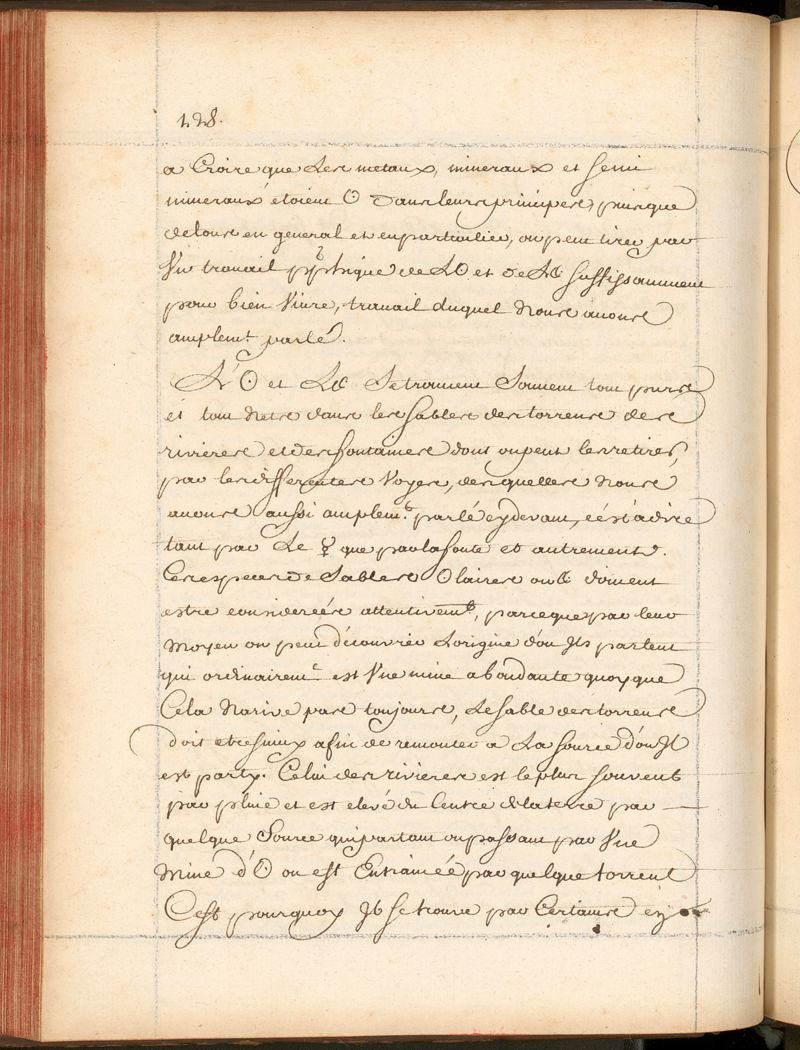 128.
a Croire que Les metaux, mineraux et semi
mineraux étoient ☉ dans leurs principes, puisque
de tous en general et en particulier, on peut tirer par
Vn travail pphique de L☉ et de L☾ suffisamment
pour bien Vivre, travail duquel Nous avons
amplemt. parlé.
L'☉ et L☾ Se trouvent Souvent tout purs
et tout Nets dans les sables des torrens des
rivieres et des fontaines dont on peut les retirer,
par les differentes Voyes, desquelles Nous
avons aussi amplemt. parlé cy devant, c'ést à dire
tant par Le ☿ que par la fonte et autrement.
Ces especes de Sables ☉laires ou ☾ doivent
estre considerées attentivemt, parce que par leur
Moyen on peut découvrir L'origine d'ou Ils partent
qui ordinairemt. est Vne mine abondante quoy que
Cela N'arive pas toujours, Le sable des torrens
doit etre suivy afin de remonter a La source d'ou Il
est party. Celui des rivieres est le plus souvent
par pluie et est elevé du Centre de la terre par
quelque Source qui partant ou passant par Vne
Mine d'☉ ou est Entrainéé par quelque torrent
C'est pourquoy Il se trouve par Certains ey